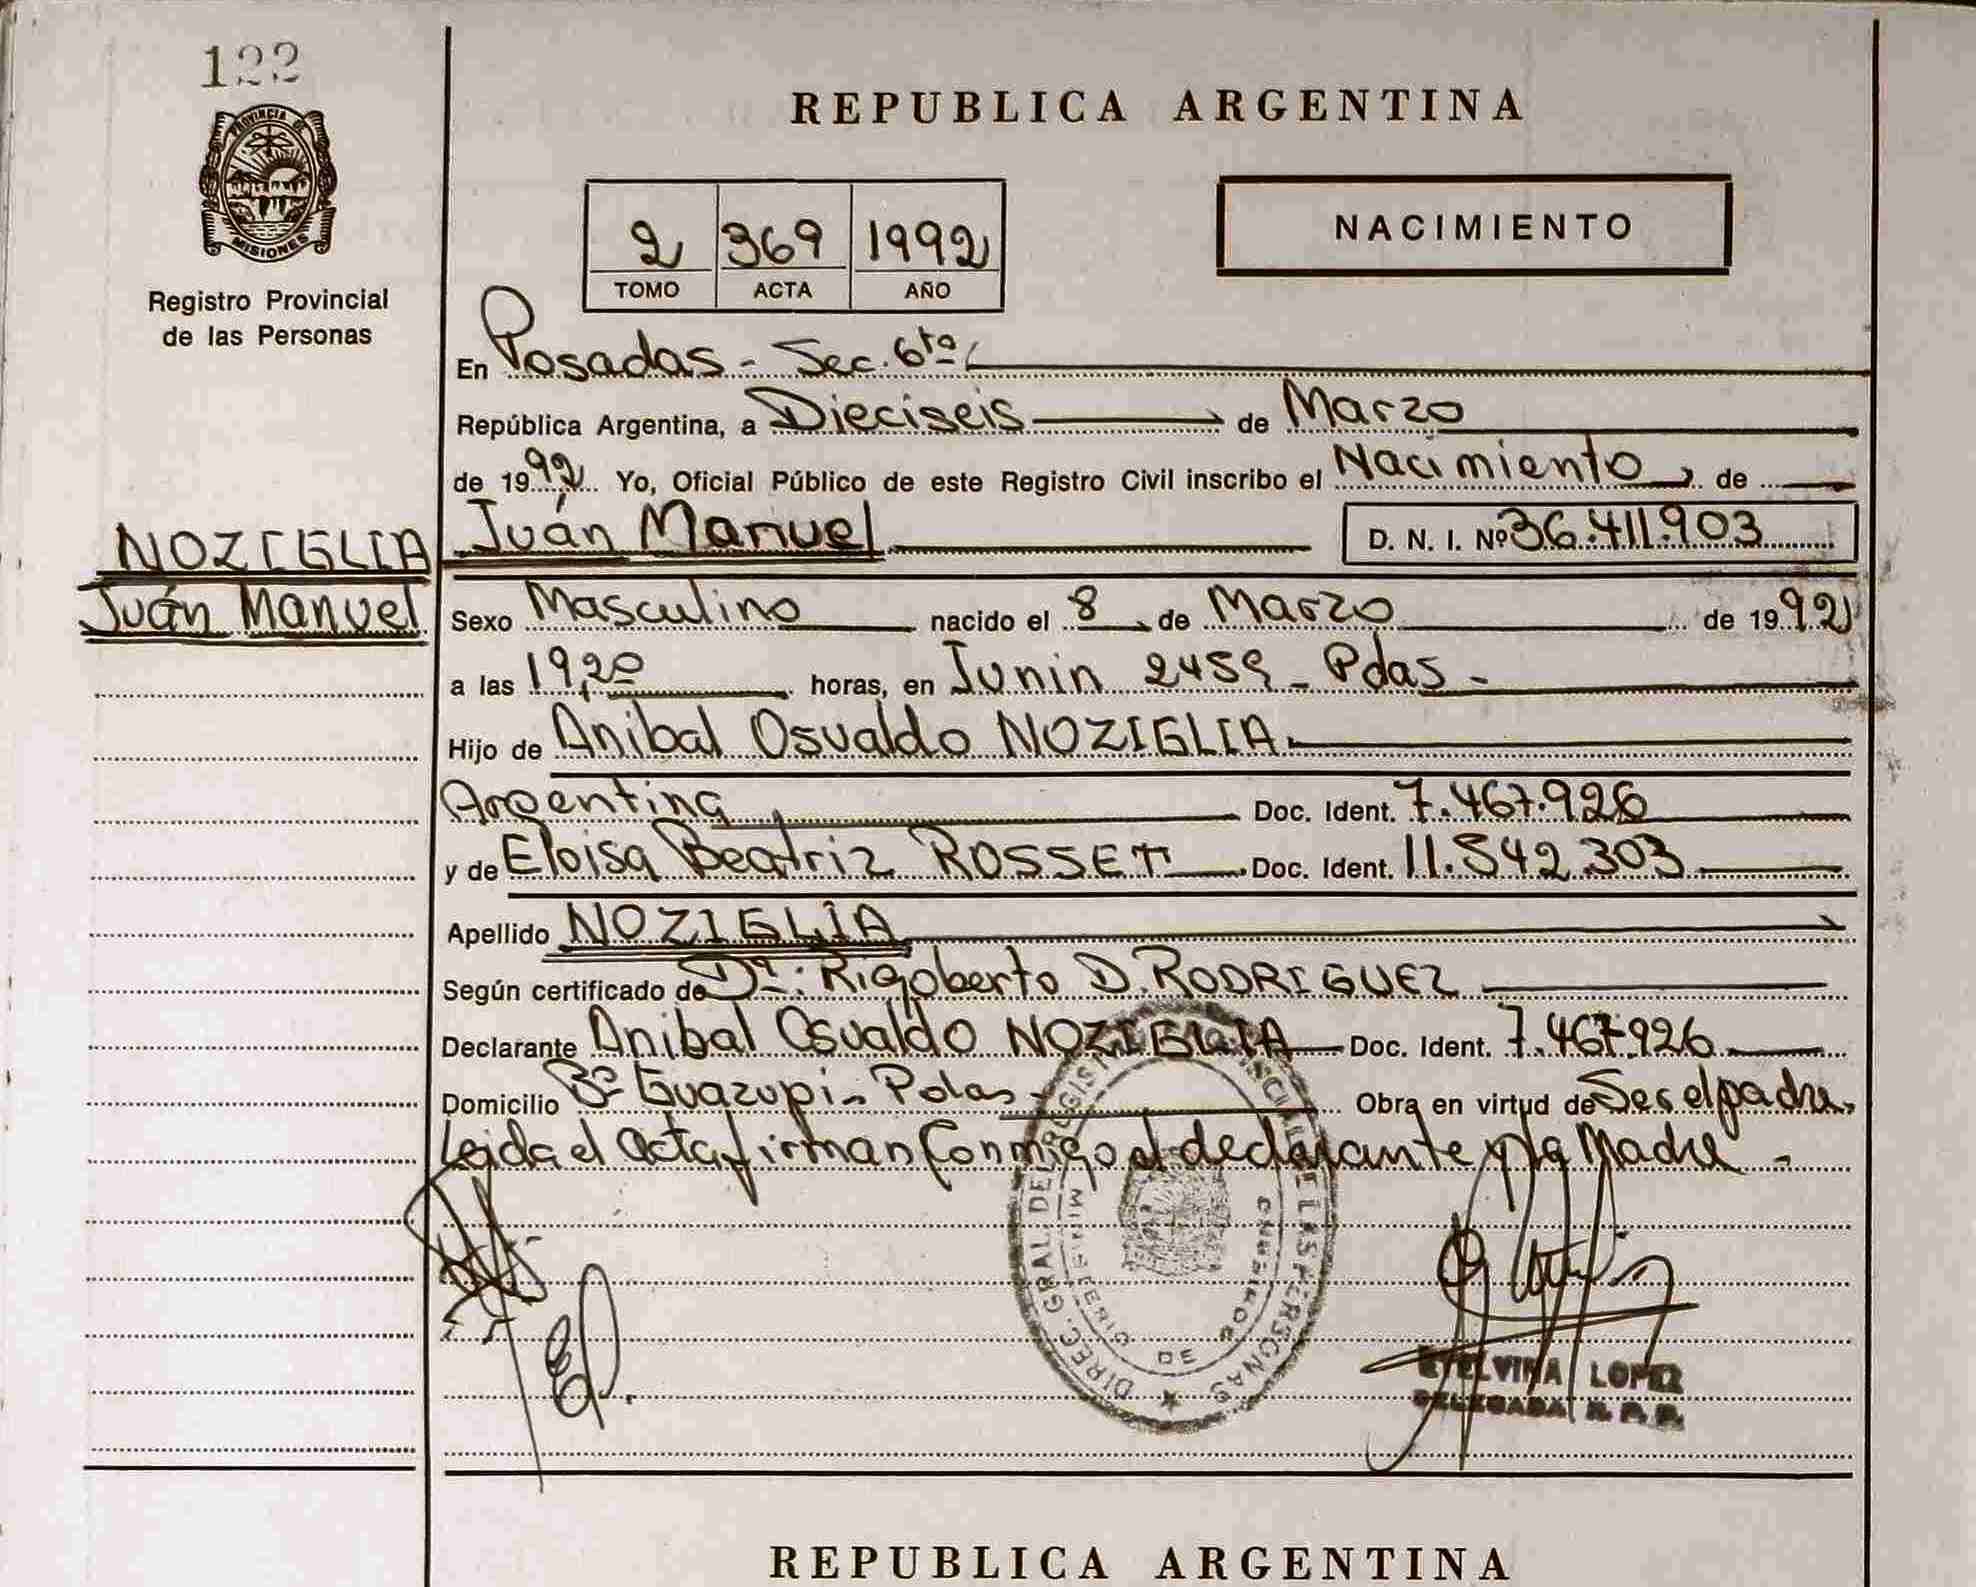 122
PROVINCIA DE
MISIONES
Registro Provincial
de las Personas
REPUBLICA ARGENTINA
2 369 1992
TOMO ACTA AÑO
NACIMIENTO
En Posadas - Sec. 6ta
República Argentina, a Dieciseis de Marzo
de 1992 Yo, Oficial Público de este Registro Civil inscribo el Nacimiento, de
NOZIGLIA
Juán Manuel
Juán Manuel D. N. I. Nº 36.411.903
Sexo Masculino nacido el 8 de Marzo de 1992
a las 19,20 horas, en Junin 2459 - Pdas -
Hijo de Anibal Osvaldo NOZIGLIA
Argentina Doc. Ident. 7.467.926
y de Eloisa Beatriz ROSSET Doc. Ident. 11.542.303
Apellido NOZIGLIA
Según certificado de Dr: Rigoberto D. RODRIGUEZ
Declarante Anibal Osvaldo NOZIGLIA Doc. Ident. 7.467.926
Domicilio Bº Guazupi - Pdas - Obra en virtud de Ser el padre,
Leida el acta firman Conmigo el declarante y la Madre -
DIREC. GRAL. DEL REGIST DE LAS PERSONAS
MINISTERIO DE GOBIERNO
ETELVINA LOPEZ
DELEGADA R. P. P.
REPUBLICA ARGENTINA